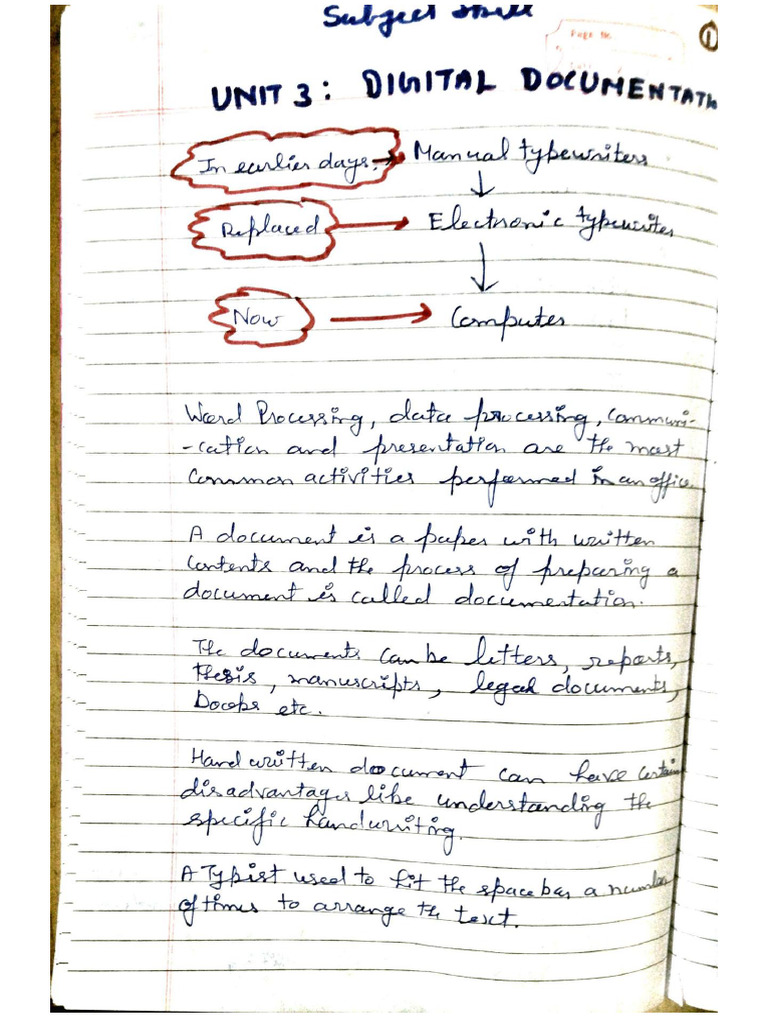 Subject Skill
Page No.
1
UNIT 3: DIGITAL DOCUMENTATI
In earlier days. → Manual typewriters
↓
Replaced → Electronic typewriter
↓
Now → Computer
Word Processing, data processing, communi-
-cation and presentation are the most
common activities performed in an office.
A document is a paper with written
contents and the process of preparing a
document is called documentation.
The documents can be letters, reports,
thesis, manuscripts, legal documents,
etc.
Hand written document can have certain
disadvantages like understanding the
specific handwriting.
A Typist used to hit the space bar a number
of times to arrange the text.